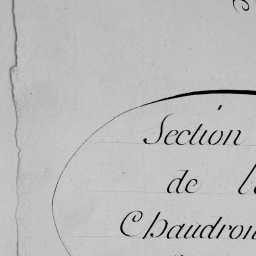 Section
de
Chaudron